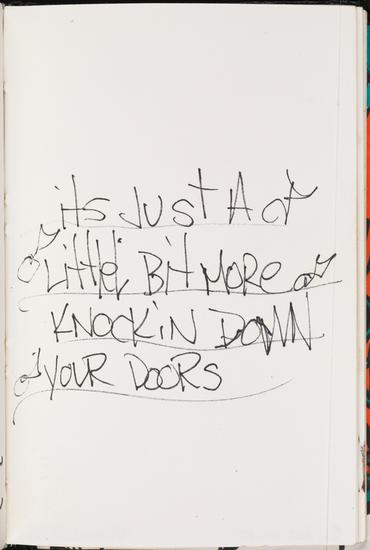 its JUST A
LittlE BiT MORE
KNOCK'iN DOWN
YOUR DOORS